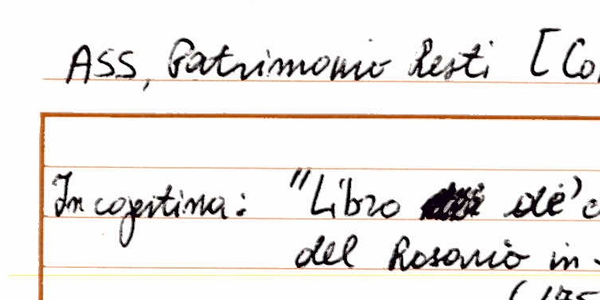 ASS, Patrimonio Resti [Co
In copertina: "Libro de' c
del Rosario in
(175